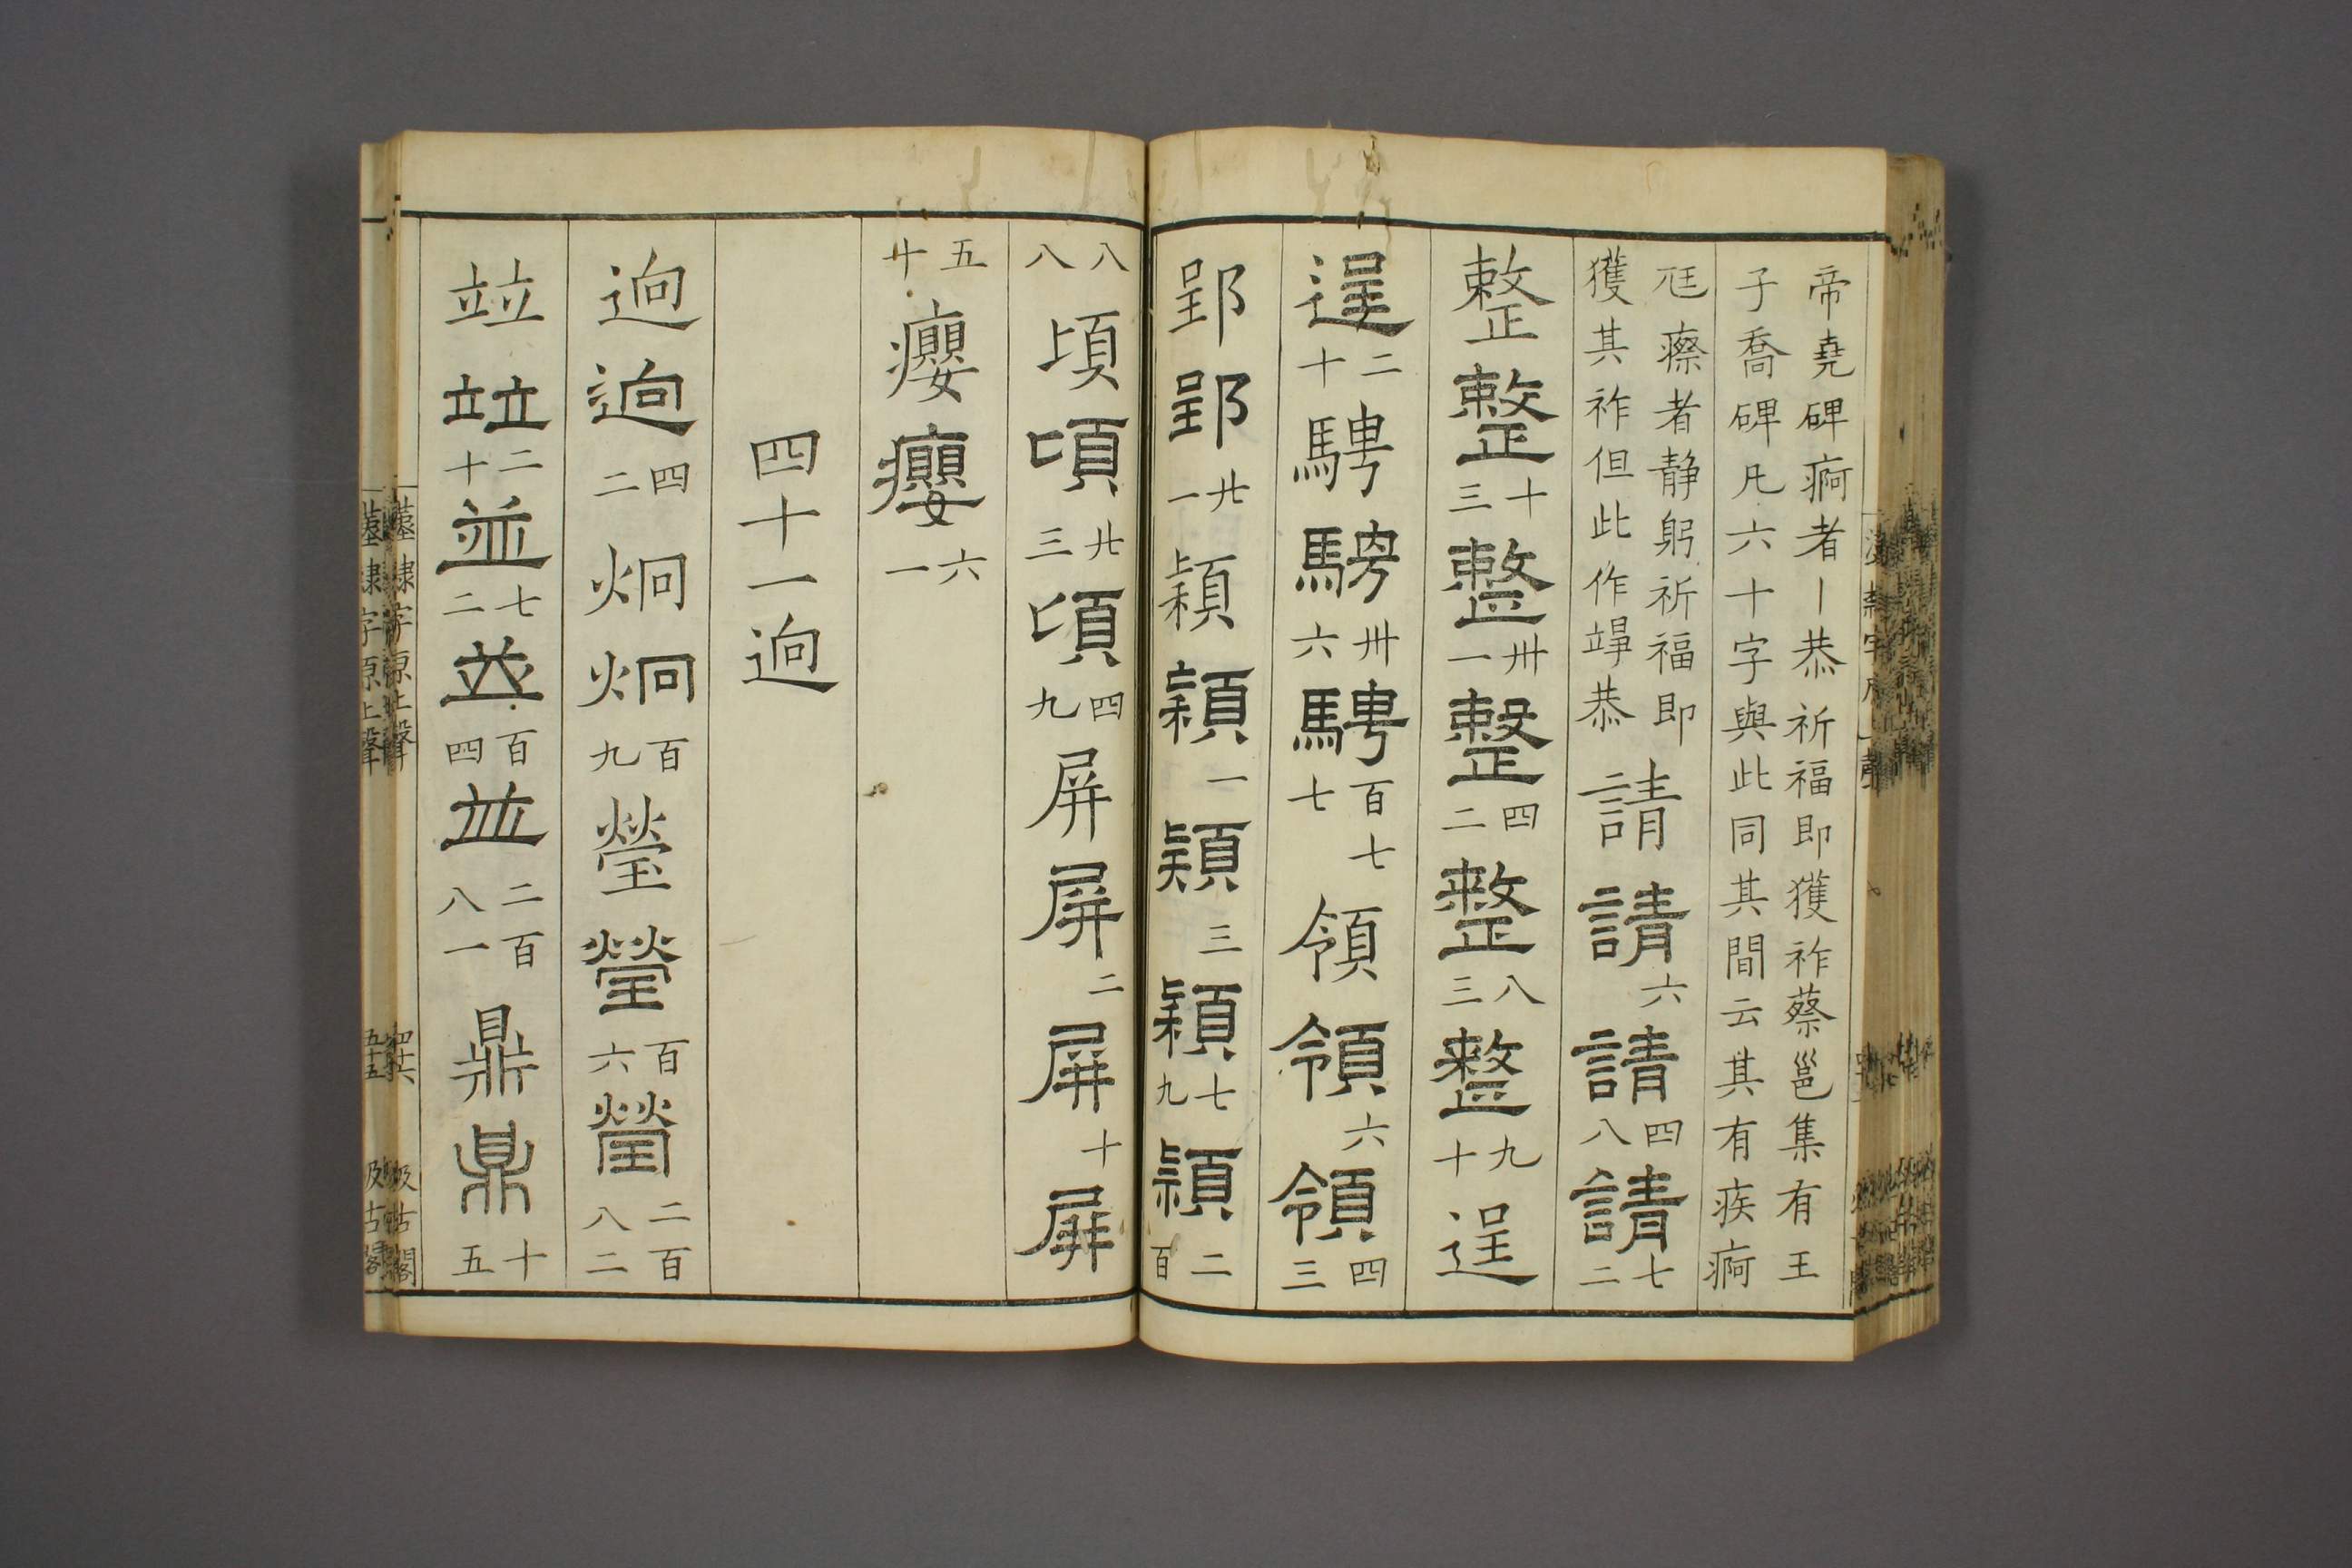 帝堯碑痾者丨恭祈福即獲祚蔡邕集有王
子喬碑凡六十字與此同其間云其有疾痾
尫瘵者静躬祈福即
獲其祚但此作竫恭
請請六請四八請七二
整整十三整卅一整四二整八三整九十逞
逞二十騁騁卅六騁百七七領領六領四三
郢郢廿一穎穎一穎三穎七九穎二百
八八頃頃廿三頃四九屏屏二屏十屏
五廿癭癭六一
四十一迥
迥迥四二炯炯百九瑩瑩百六瑩二百八二
竝竝二十並七二並百四並二百八一鼎鼎十五
隸字原上聲 汲古閣
隸字原上聲 五十五 汲古閣